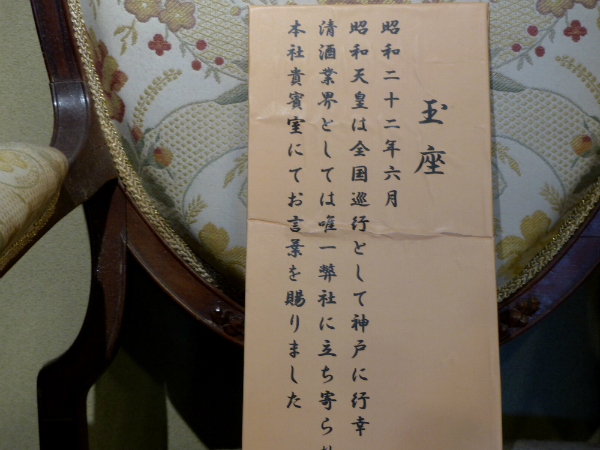 玉座
昭和二十二年六月
昭和天皇は全国巡行として神戸に行幸
清酒業界としては唯一弊社に立ち寄られ
本社貴賓室にてお言葉を賜りました